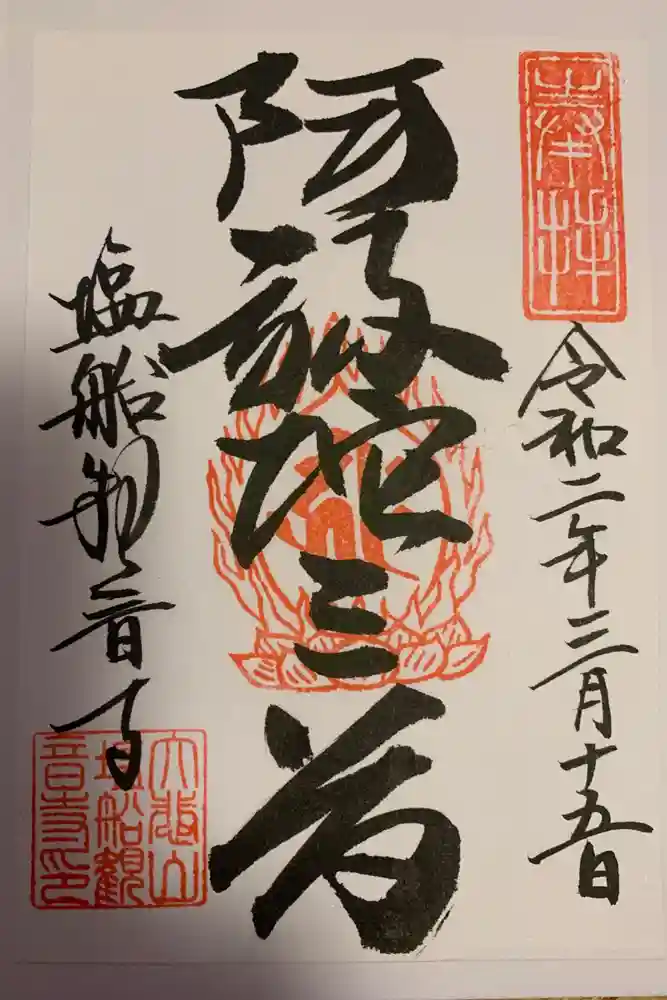 奉拝
令和二年三月十五日
阿弥陀三尊
塩船観音寺
大悲山
塩船観
音寺印